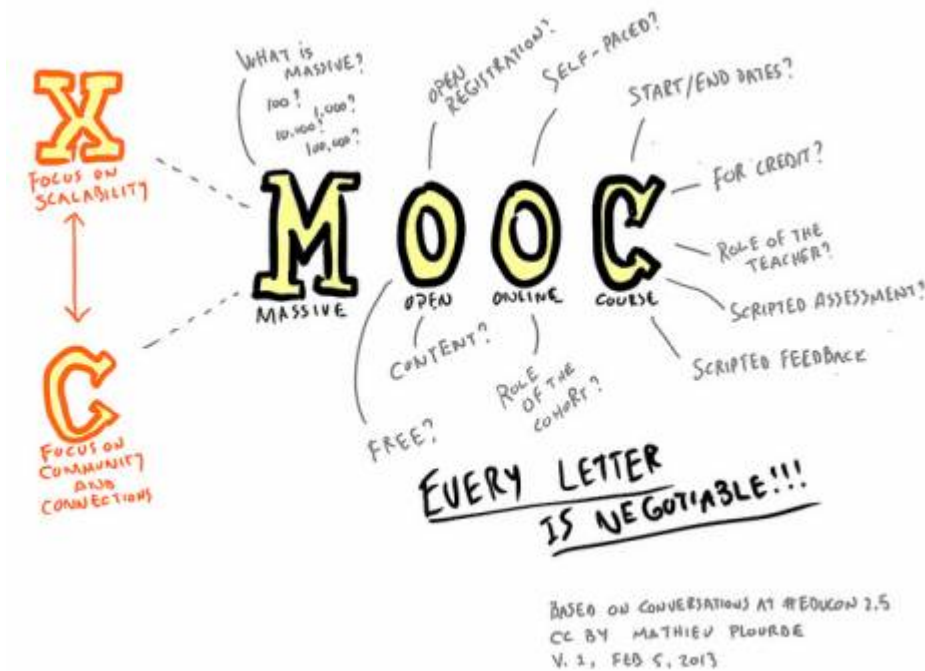 X
FOCUS ON
SCALABILITY
C
FOCUS ON
COMMUNITY
AND
CONNECTIONS
WHAT IS
MASSIVE?
100?
1,000?
10,000?
100,000?
OPEN
REGISTRATION?
SELF-PACED?
START/END DATES?
FOR CREDIT?
MOOC
MASSIVE OPEN ONLINE COURSE
ROLE OF THE
TEACHER?
SCRIPTED ASSESSMENT?
SCRIPTED FEEDBACK
CONTENT?
FREE?
ROLE
OF THE
COHORT?
EVERY LETTER
IS NEGOTIABLE!!!
BASED ON CONVERSATIONS AT #EDUCON 2.5
CC BY MATHIEU PLOURDE
V. 1, FEB 5, 2013